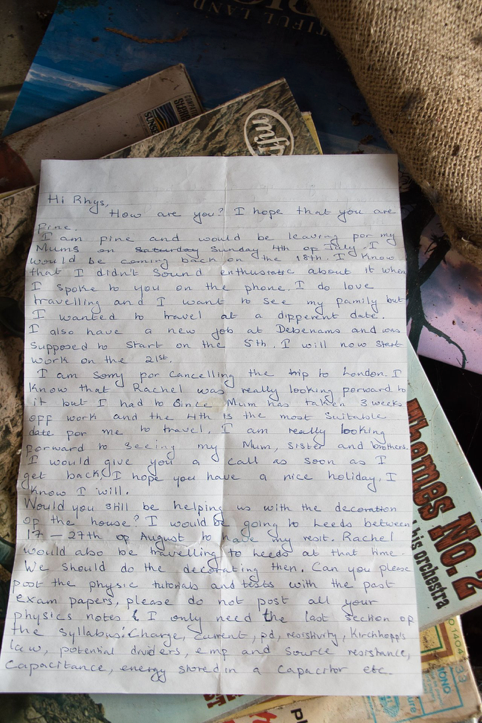 TIFUL LAND
SUNSET
mfp
Hi Rhys,
How are you? I hope that you are
fine.
I am fine and would be leaving for my
Mums on Saturday Sunday 4th of July. I
would be coming back on the 18th. I know
that I didn't sound enthusiastic about it when
I spoke to you on the phone. I do love
travelling and I want to see my family but
I wanted to travel at a different date.
I also have a new job at Debenams and was
supposed to start on the 5th. I will now start
work on the 21st.
I am sorry for cancelling the trip to London. I
know that Rachel was really looking forward to
it but I had to since Mum has taken 3 weeks
off work and the 4th is the most suitable
date for me to travel. I am really looking
forward to seeing my Mum, sister and brothers.
I would give you a call as soon as I
get back. I hope you have a nice holiday. I
know I will.
Would you still be helping us with the decoration
of the house? I would be going to Leeds between
17 - 27th of August to have my rest. Rachel
would also be travelling to Leeds at that time.
We should do the decorating then. Can you please
post the physic tutorials and tests with the past
exam papers, please do not post all your
physics notes & I only need the last section of
the syllabus: Charge, current, pd, resistivity, Kirchhopp's
law, potential dividers, emf and source resistance,
Capacitance, energy stored in a Capacitor etc.
Themes No. 2
his orchestra